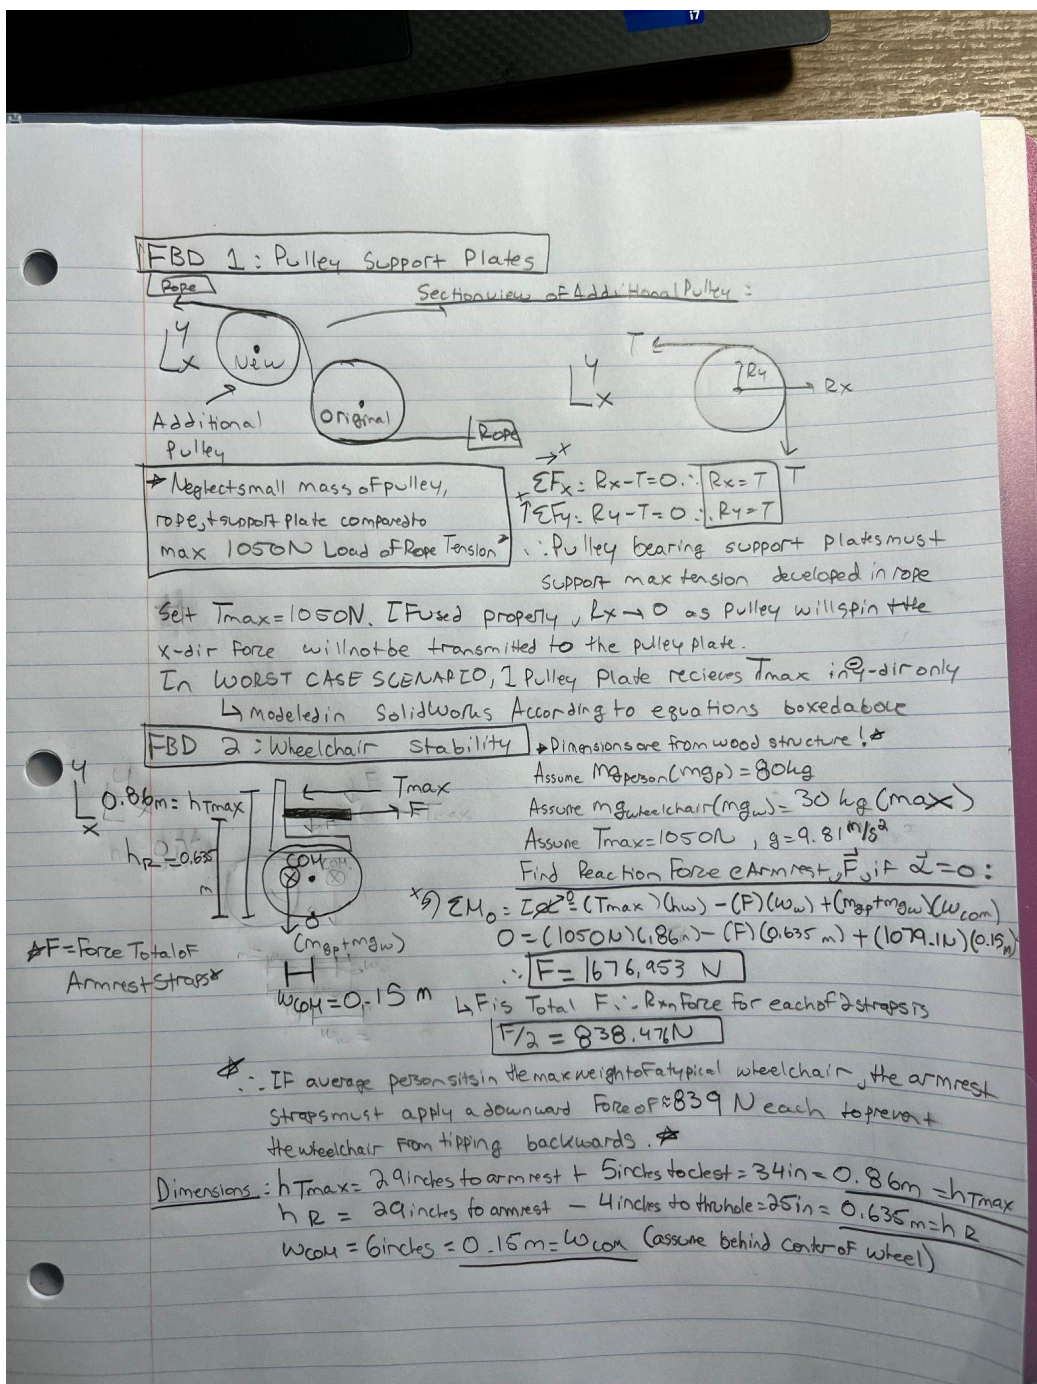 i7
FBD 1: Pulley Support Plates
Rope
Section view of Additional Pulley:
y
x
New
Original
Rope
Additional
Pulley
y
x
T
Ry
Rx
T
→ Neglect small mass of pulley,
rope, + support plate compared to
max 1050N Load of Rope Tension
→x
ΣFx: Rx-T=0 ∴ Rx=T
+↑ΣFy: Ry-T=0 ∴ Ry=T
∴ Pulley bearing support plates must
support max tension developed in rope
Set Tmax=1050N. If used properly, Rx→0 as pulley will spin + the
x-dir force will not be transmitted to the pulley plate.
In WORST CASE SCENARIO, 1 Pulley Plate recieves Tmax in ⊖y-dir only
↳ modeled in SolidWorks According to equations boxed above
FBD 2: Wheelchair Stability
→ Dimensions are from wood structure!☆
y
x
0.86m = hTmax
hR = 0.635
m
Tmax
F
COM
o
(mgp+mgw)
wCOM = 0.15 m
☆F=Force Total of
Armrest Straps☆
Assume mgperson(mgp) = 80kg
Assume mgwheelchair(mgw) = 30 kg (max)
Assume Tmax=1050N, g=9.81 m/s²
Find Reaction Force @ Armrest, F⃗, if α⃗=0:
+↶) ΣMo = Iα⁰ = (Tmax)(hw) - (F)(ww) + (mgp+mgw)(wcom)
0 = (1050N)(.86m) - (F)(0.635 m) + (1079.1N)(0.15m)
∴ F= 1676.953 N
↳ F is Total F ∴ Rxn Force for each of 2 straps is
F/2 = 838.476N
☆ ∴ IF average person sits in the max weight of a typical wheelchair, the armrest
straps must apply a downward Force of ≈839 N each to prevent
the wheelchair from tipping backwards. ☆
Dimensions: hTmax= 29inches to armrest + 5inches to chest = 34in = 0.86m = hTmax
hR = 29inches to armrest - 4inches to thruhole = 25in = 0.635m = hR
wCOM = 6inches = 0.15m = wCOM (assume behind center of wheel)